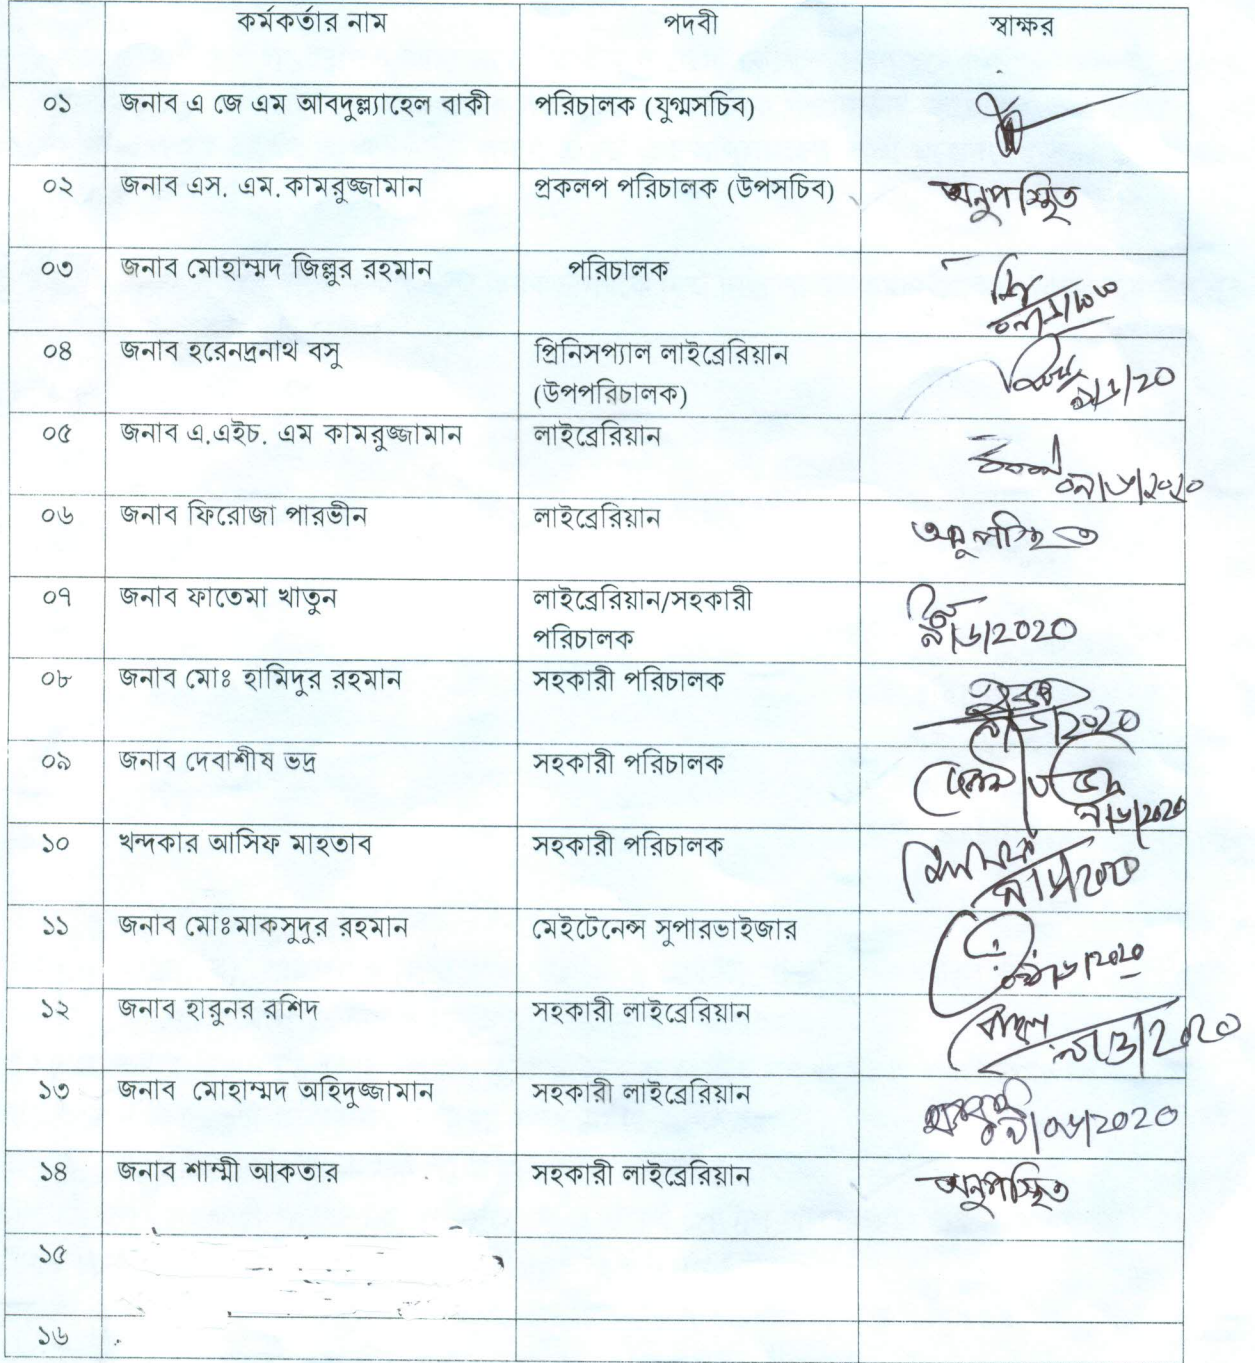 কর্মকর্তার নাম পদবী স্বাক্ষর
০১ জনাব এ জে এম আবদুল্ল্যাহেল বাকী পরিচালক (যুগ্মসচিব)
০২ জনাব এস. এম.কামরুজ্জামান প্রকলপ পরিচালক (উপসচিব) অনুপস্থিত
০৩ জনাব মোহাম্মদ জিল্লুর রহমান পরিচালক
০৪ জনাব হরেনদ্রনাথ বসু প্রিনিসপ্যাল লাইব্রেরিয়ান
(উপপরিচালক) ৯/৬/20
০৫ জনাব এ.এইচ. এম কামরুজ্জামান লাইব্রেরিয়ান
০৯/৬/২০২০
০৬ জনাব ফিরোজা পারভীন লাইব্রেরিয়ান অনুপস্থিত
০৭ জনাব ফাতেমা খাতুন লাইব্রেরিয়ান/সহকারী
পরিচালক ৯/৬/2020
০৮ জনাব মোঃ হামিদুর রহমান সহকারী পরিচালক
৯/৬/2020
০৯ জনাব দেবাশীষ ভদ্র সহকারী পরিচালক
৯/৬/2020
১০ খন্দকার আসিফ মাহতাব সহকারী পরিচালক
১১ জনাব মোঃমাকসুদুর রহমান মেইটেনেন্স সুপারভাইজার
০৯/৬/2020
১২ জনাব হারুনর রশিদ সহকারী লাইব্রেরিয়ান
১৩ জনাব মোহাম্মদ অহিদুজ্জামান সহকারী লাইব্রেরিয়ান
০৯/০৬/2020
১৪ জনাব শাম্মী আকতার সহকারী লাইব্রেরিয়ান অনুপস্থিত
১৫
১৬